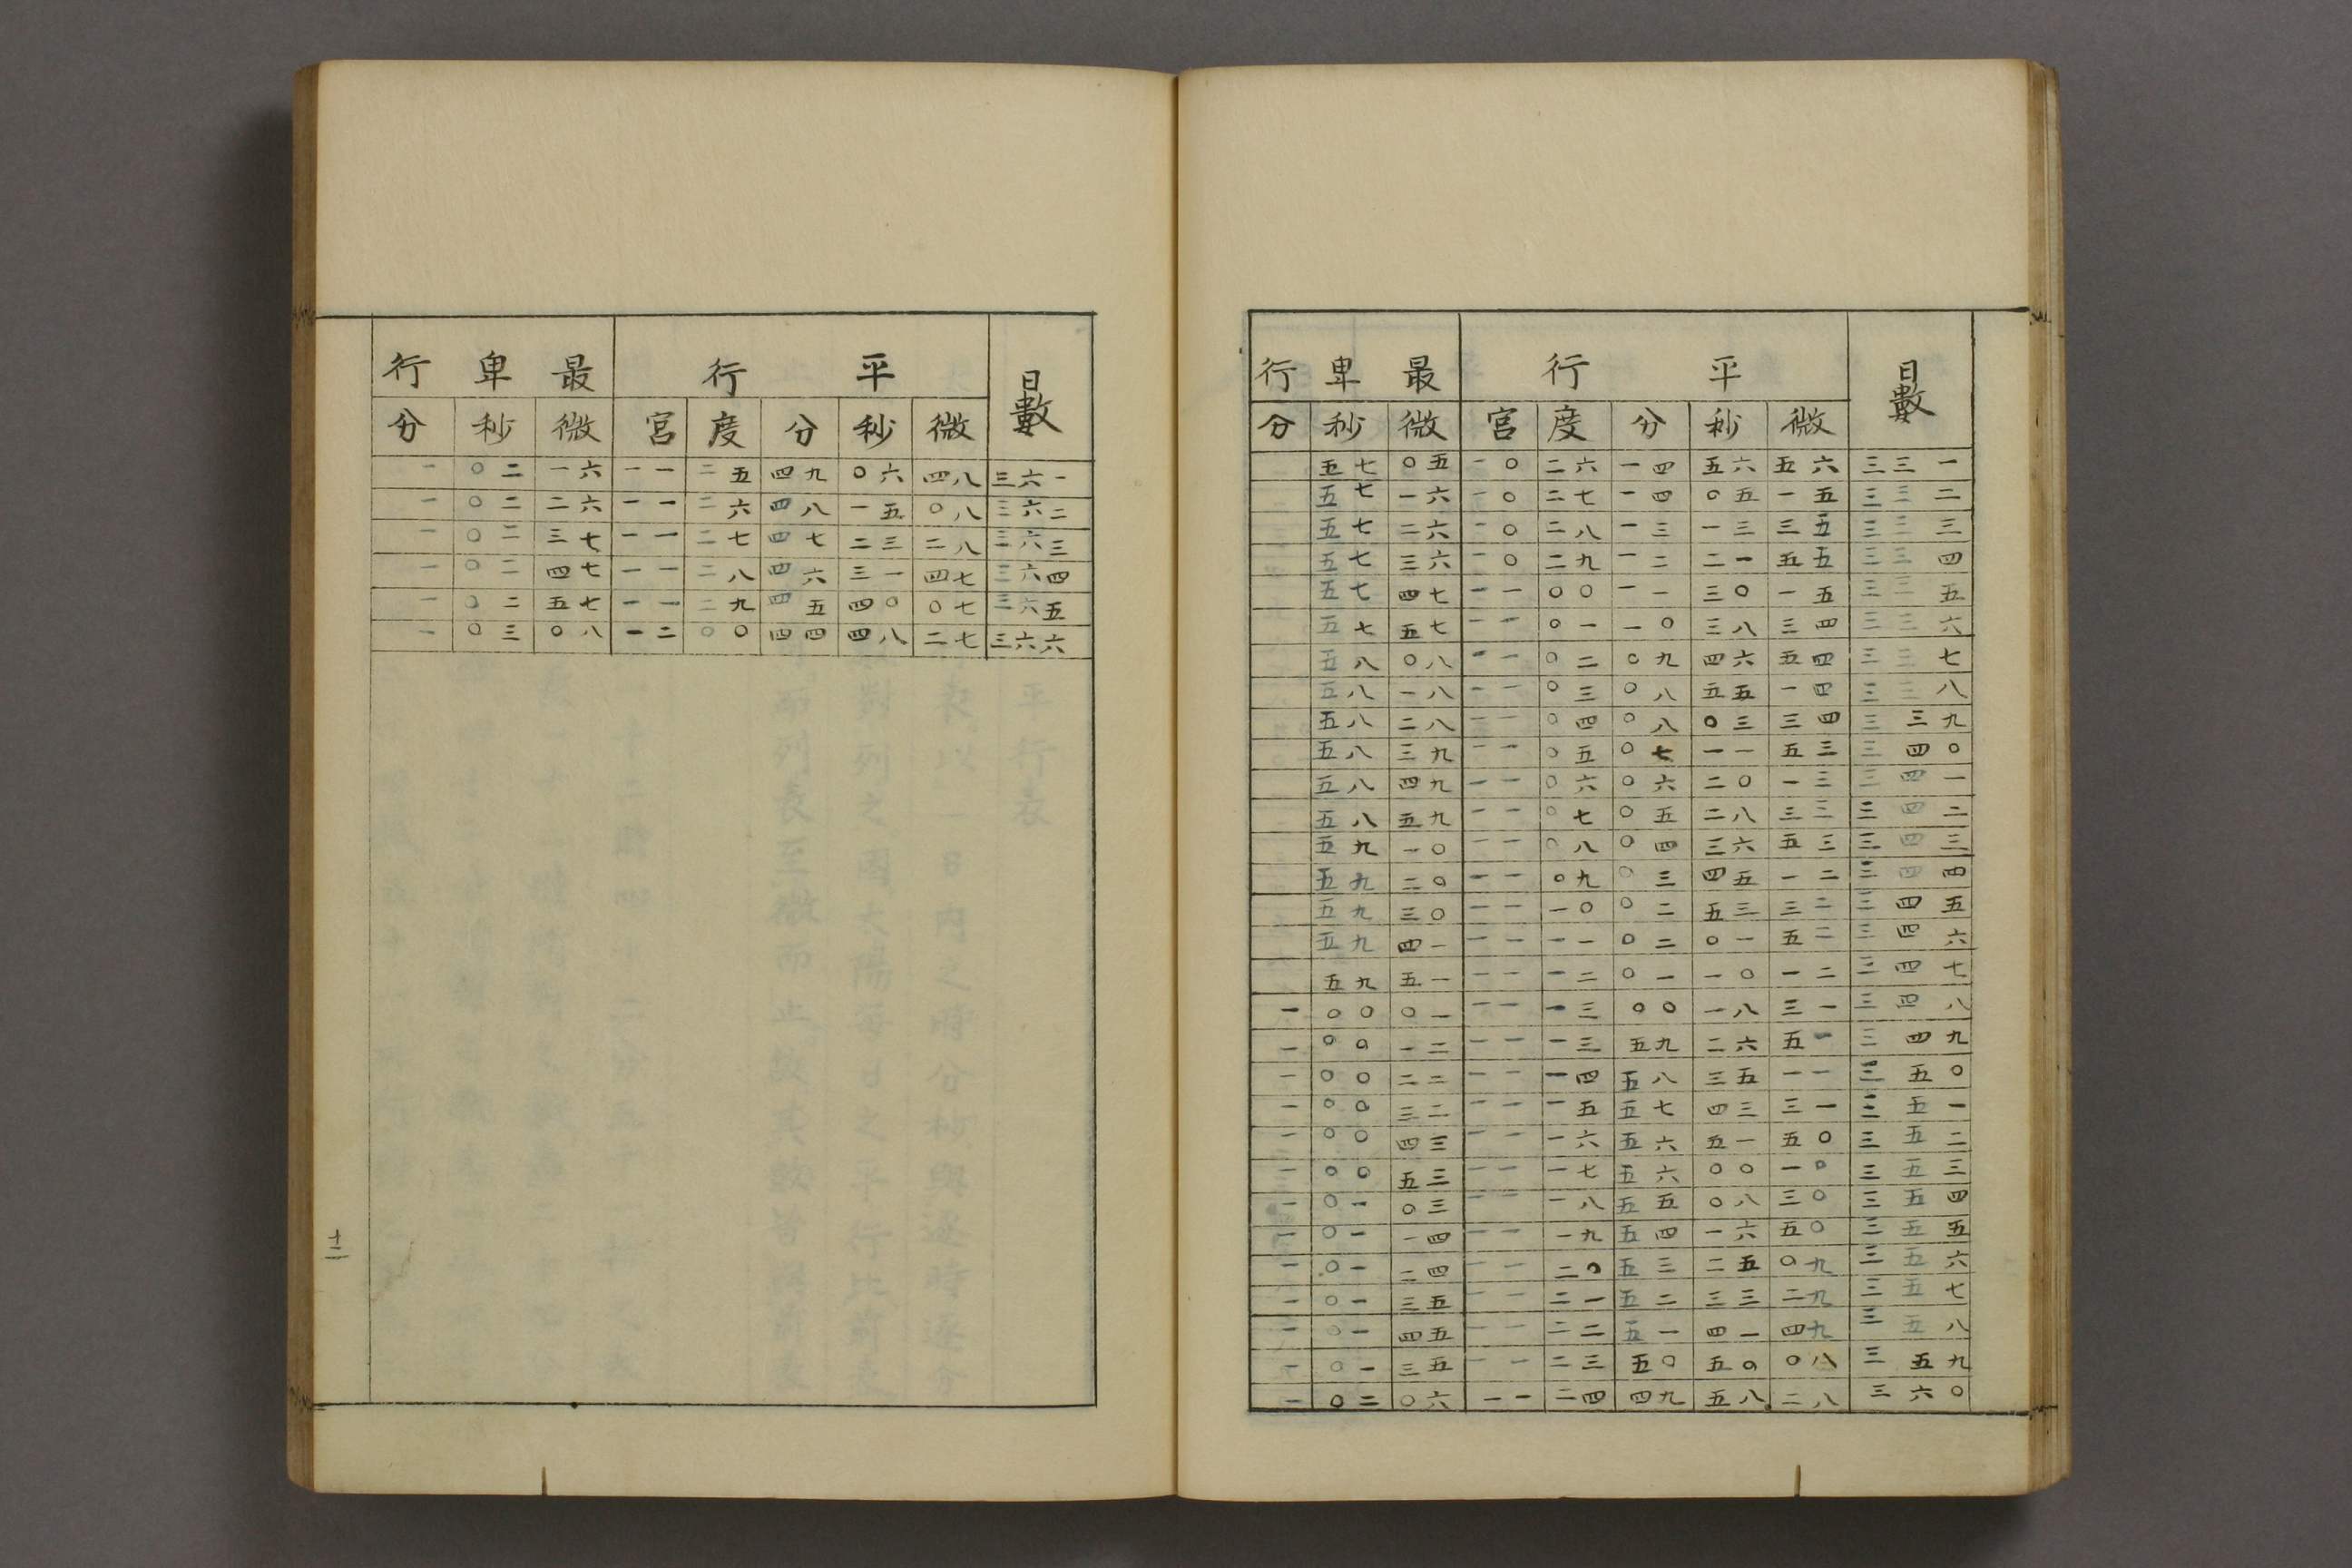 日數 平行 最卑行
微 秒 分 度 宮 微 秒 分
三三一 五六 五六 一四 二六 一〇 〇五 五七
三三二 一五 〇五 一四 二七 一〇 一六 五七
三三三 三五 一三 一三 二八 一〇 二六 五七
三三四 五五 二一 一二 二九 一〇 三六 五七
三三五 一五 三〇 一一 〇〇 一一 四七 五七
三三六 三四 三八 一〇 〇一 一一 五七 五七
三三七 五四 四六 〇九 〇二 一一 〇八 五八
三三八 一四 五五 〇八 〇三 一一 一八 五八
三三九 三四 〇三 〇八 〇四 一一 二八 五八
三四〇 五三 一一 〇七 〇五 一一 三九 五八
三四一 一三 二〇 〇六 〇六 一一 四九 五八
三四二 三三 二八 〇五 〇七 一一 五九 五八
三四三 五三 三六 〇四 〇八 一一 一〇 五九
三四四 一二 四五 〇三 〇九 一一 二〇 五九
三四五 三二 五三 〇二 一〇 一一 三〇 五九
三四六 五二 〇一 〇二 一一 一一 四一 五九
三四七 一二 一〇 〇一 一二 一一 五一 五九
三四八 三一 一八 〇〇 一三 一一 〇一 〇〇 一
三四九 五一 二六 五九 一三 一一 一二 〇〇 一
三五〇 一一 三五 五八 一四 一一 二二 〇〇 一
三五一 三一 四三 五七 一五 一一 三二 〇〇 一
三五二 五〇 五一 五六 一六 一一 四三 〇〇 一
三五三 一〇 〇〇 五六 一七 一一 五三 〇〇 一
三五四 三〇 〇八 五五 一八 一一 〇三 〇一 一
三五五 五〇 一六 五四 一九 一一 一四 〇一 一
三五六 〇九 二五 五三 二〇 一一 二四 〇一 一
三五七 二九 三三 五二 二一 一一 三五 〇一 一
三五八 四九 四一 五一 二二 一一 四五 〇一 一
三五九 〇八 五〇 五〇 二三 一一 三五 〇一 一
三六〇 二八 五八 四九 二四 一一 〇六 〇二 一
日數 平行 最卑行
微 秒 分 度 宮 微 秒 分
三六一 四八 〇六 四九 二五 一一 一六 〇二 一
三六二 〇八 一五 四八 二六 一一 二六 〇二 一
三六三 二八 二三 四七 二七 一一 三七 〇二 一
三六四 四七 三一 四六 二八 一一 四七 〇二 一
三六五 〇七 四〇 四五 二九 一一 五七 〇二 一
三六六 二七 四八 四四 〇〇 一二 〇八 〇三 一
十二